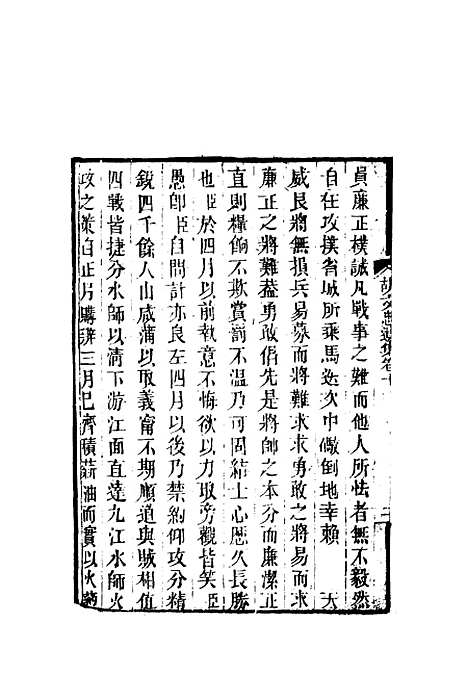 貞廉正樸誠凡戰事之難而他人所怯者無不毅然
自在攻撲省城所乘馬迭次中礮倒地幸賴　天
威良將無損兵易募而將難求求勇敢之將易而求
廉正之將難蓋勇敢倡先是將帥之本分而廉潔正
直則糧餉不欺賞罰不濫乃可固結士心歷久長勝
也臣於四月以前執意不悔欲以力取旁觀皆笑臣
愚卽臣自問計亦良左四月以後乃禁約仰攻分精
銳四千餘人由咸蒲以取義甯不期順道與賊相值
四戰皆捷分水師以清下游江面直達九江水師火
攻之策自正月購辦三月已齊積薪油而實以火
胡文忠遺集卷